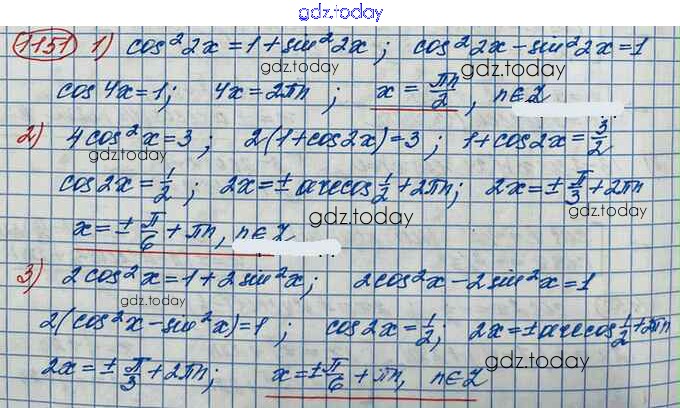 gdz.today
1151 1) cos²2x = 1 + sin²2x; cos²2x - sin²2x = 1
gdz.today gdz.today
cos4x = 1; 4x = 2πn; x = πn/2, n∈Z
2) 4cos²x = 3; 2(1+cos2x) = 3; 1+cos2x = 3/2
gdz.today gdz.today
cos2x = 1/2; 2x = ± arccos 1/2 + 2πn; 2x = ± π/3 + 2πn
x = ± π/6 + πn, n∈Z gdz.today
3) 2cos²x = 1 + 2sin²x; 2cos²x - 2sin²x = 1
gdz.today
2(cos²x - sin²x) = 1; cos2x = 1/2; 2x = ± arccos 1/2 + 2πn
gdz.today
2x = ± π/3 + 2πn; x = ± π/6 + πn, n∈Z